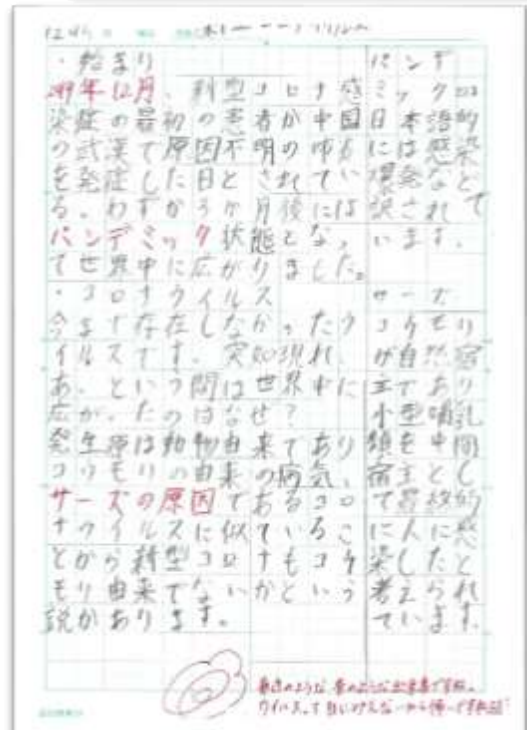 ・始まり
2019年12月、新型コロナ感
染症の最初の患者が中国
の武漢で原因不明の肺炎
を発症した日とされてい
る。わずか3か月後には
パンデミック状態となっ
て世界中に広がりました。
・コロナウイルス
今まで存在しなかったウ
イルスです。突如現れ、
あっという間に世界中に
広がったのはなぜ?
発生源は動物由来であり
コウモリの由来の病気、
サーズの原因であるコロ
ナウイルスに似ているこ
とから新型コロナもコウ
モリ由来でないかという
説があります。
パンデ
ミック
日本語的
には感染
爆発など
と訳されて
います。
サーズ
コウモリ
が自然宿
主であり
小型哺乳
類を中間
宿主とし
て最終的
に人に感
染したと
考えられ
ています。